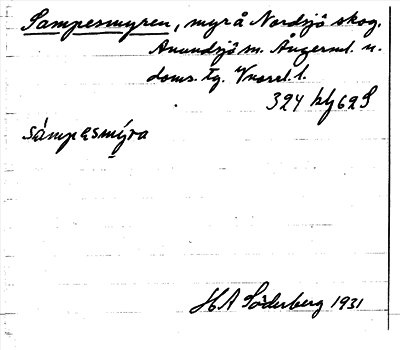 Sampesmyren, myr å Nordsjö skog.
Anundsjö sn. Ångerml. n.
doms. tg. Vnorrl. l.
324 hlj 62 S
sámpasmýra
HA Söderberg 1931